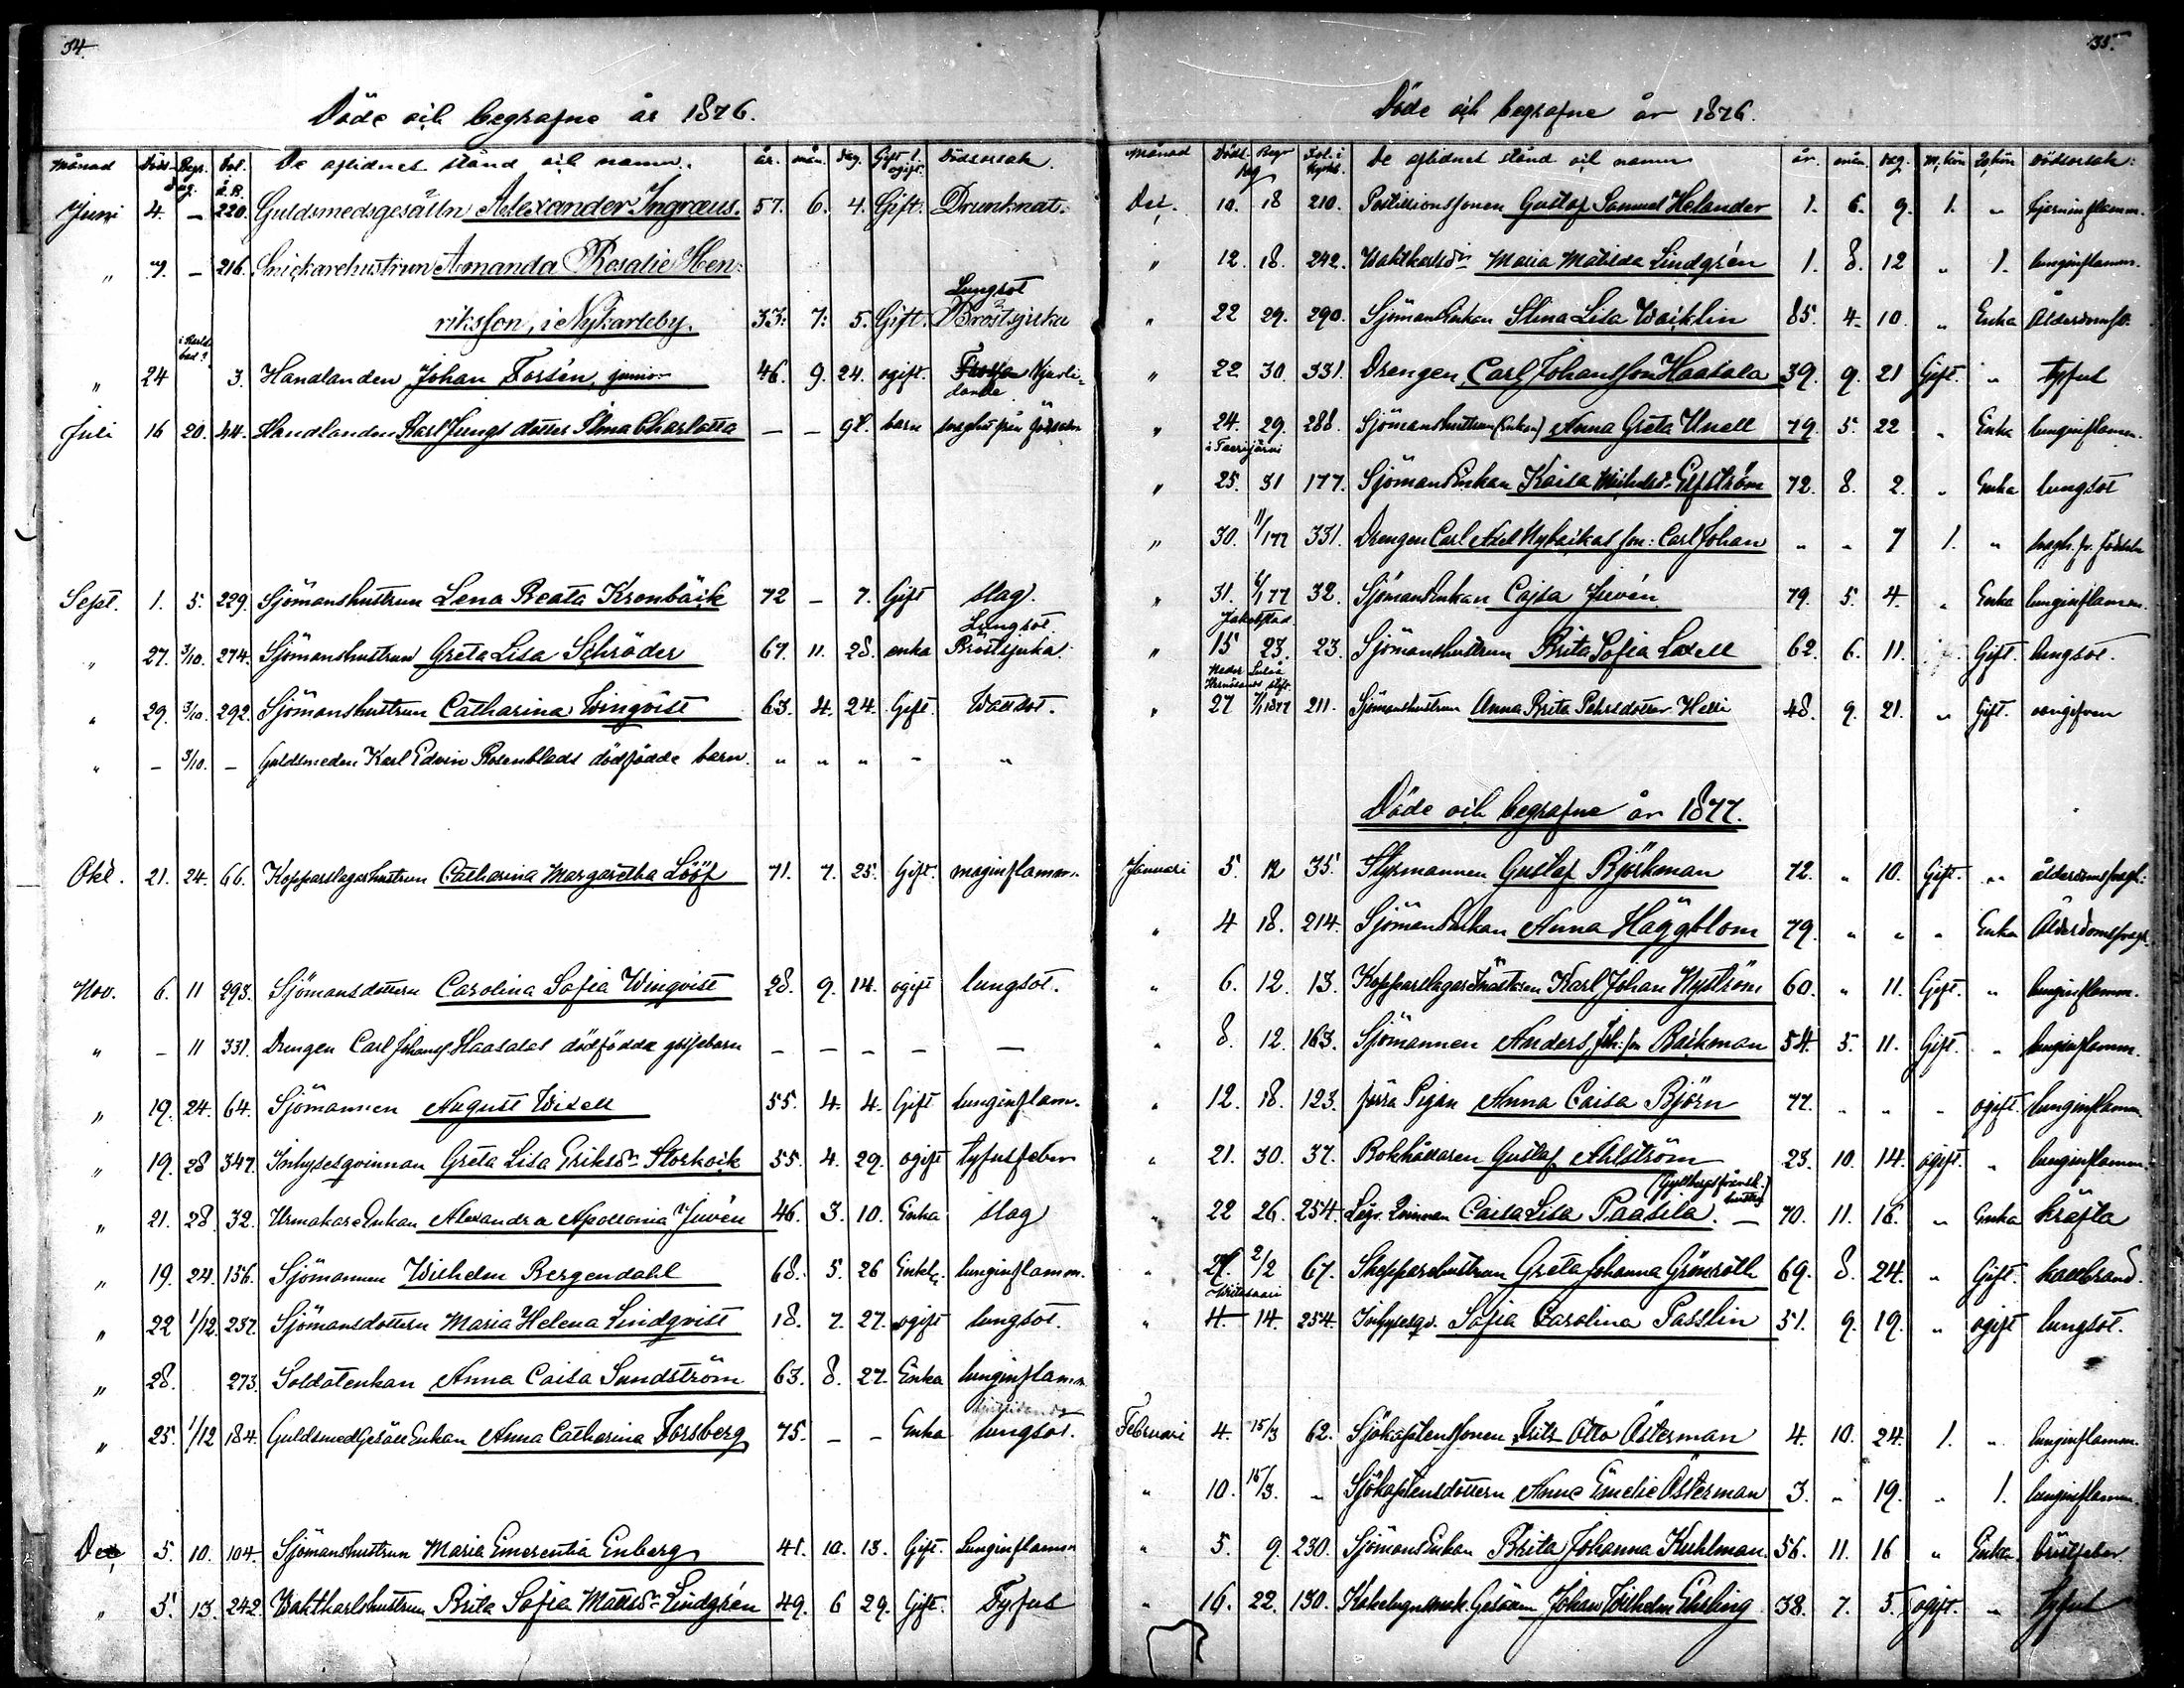 34.
Döde och begrafne år 1876.
Månad Död- Begr. dag. De aflidnes stånd och namn. år. mån. dag. Gift l. ogift. Dödsorsak.
Juni 4. — 220. Guldsmedsgesälln Alexander Ingræus. 57. 6. 4. Gift. Drunknat.
" — 216. Snickarehustrun Amanda Rosalie Hen-
Lungsot
riksson, i Nykarleby. 33. 7. 5. Gift. Bröstsjuka
" 24 3. Handlanden Johan Forsén, junior 46. 9. 24. ogift.
Juli 16 20. 44. Handlanden Karl Jungs dotter Alma Charlotta — — barn
Sept. 1. 5. 229. Sjömanshustrun Lena Beata Kronbäck 72 — 7. Gift slag.
Lungsot
" 27. 3/10. 274. Sjömanshustrun Greta Lisa Schröder 67. 11. 28. enka Bröstsjuka.
" 29. 3/10. 292. Sjömanshustrun Catharina Wingvist 63. 4. 24. Gift. Wattsot.
" — 3/10. — Guldsmeden Karl Edvin Rosenblads dödfödde barn. " " " " "
Okt. 21. 24. 66. Kopparslagarhustrun Catharina Margaretha Lööf 71. 7. 25. Gift. maginflamm.
Nov. 6. 11 293. Sjömansdottern Carolina Sofia Wingvist 28. 9. 14. ogift lungsot.
" — 11 331. Drengen Carl Johanss Haasalas dödfödda gossebarn — — — — —
" 19. 24. 64. Sjömannen August Wixell 55. 4. 4. Gift lunginflam.
" 19. 28 347. Inhysesqvinnan Greta Lisa Eriksdr Storkvik 55. 4. 29. ogift tyfusfeber
" 21. 28. 32. Urmakare Enkan Alexandra Apollonia Juvén 46. 3. 10. Enka slag
" 19. 24. 156. Sjömannen Wilhelm Bergendahl 68. 5. 26 Enkl. lunginflamm.
" 22 1/12. 237. Sjömansdottern Maria Helena Lindqvist 18. 7. 27. ogift lungsot.
" 28. 273. Soldatenkan Anna Caisa Sundström 63. 8. 27. Enka lunginflamm.
" 25. 1/12 184. Guldsmed Gesäll Enkan Anna Catharina Forsberg 75. — — Enka lungsot.
Dec 5. 10. 104. Sjömanshustrun Maria Emerentia Enberg 41. 10. 13. Gift. Lunginflamm
" 5. 13. 242 Waktkarlshustrun Brita Sofia Mattsdr Lindgrén 49. 6 29. Gift. Tyfus
35.
Döde och begrafne år 1876.
Månad Död- Begr dag Fol. i De aflidnes stånd och namn år. mån. dag. M. kön Q. kön Dödsorsak:
Dec. 10. 18 210. Postiljonssonen Gustaf Samuel Helander 1. 6. 9. 1. " hjerninflamm.
" 12. 18. 242. Waktkarlsdr Maria Matilda Lindgrén 1. 8. 12 " 1. lunginflamm.
" 22 29. 290. Sjöman Enkan Stina Lisa Waiklin 85. 4. 10. " Enka
" 22 30. 331. Drengen Carl Johansson Haasala 39. 9. 21 Gift. " tyfus
" 24. 29. 288. Sjömanshustrun (Enkan) Anna Greta Unell 79. 5. 22 " Enka lunginflamm.
i Teerijärvi
" 25. 31 177. Sjömans Enkan Kaisa Elfström 72. 8. 2. " Enka lungsot
" 30. 331. Drengen Carl Axel Nybackas son: Carl Johan " " 7 1. "
" 31. 32. Sjömans Enkan Cajsa Juvén 79. 5. 4. " Enka lunginflamm.
Jakobstad
" 15 23. 23. Sjömanshustrun Brita Sofia Laxell 62. 6. 11. Gift. lungsot.
Neder Luleå
Hernösands stift
" 27 211. Sjömanshustrun Anna Brita Pehrsdotter Helsi 48. 9. 21. " Gift. oangifven
Döde och begrafne år 1877.
Januari 5. 12 35. Styrmannen Gustaf Björkman 72. " 10. Gift. " ålderdomssvagh:
" 4 18. 214. Sjömans Enkan Anna Häggblom 79. " " " Enka Ålderdomssvagh
" 6. 12. 13. Kopparslagaremästaren Karl Johan Nyström 60. " 11. Gift. " lunginflamm.
" 8. 12. 163. Sjömannen Anders Joh:son Backman 54. 5. 11. Gift. " lunginflamm.
" 12. 18. 123. förra Pigan Anna Caisa Björn 77. " " " ogift. lunginflamm
" 21. 30. 37. Bokhållaren Gustaf Ahlström 23. 10. 14. ogift. " lunginflamm.
" 22 26. 254. Legv. Qvinnan Caisa Lisa Paasila. — 70. 11. 16. " Enka kräfta
" 2/2 67. Skepparehustrun Greta Johanna Grönroth 69. 8. 24. " Gift. kallbrand.
" 14. 254. Inhysesqv. Sofia Carolina Passlin 51. 9. 19. " ogift lungsot.
Februari 4. 15/3 62. Sjökaptenssonen Fritz Otto Österman 4. 10. 24. 1. " lunginflamm.
" 10. 15/3. " Sjökaptensdottern Anne Emelie Österman 3. " 19. " 1. lunginflamm.
" 5. 9. 230. Sjömans Enkan Brita Johanna Kuhlman. 56. 11. 16 " Enka
" 16. 22. 130. Kakelugnsmak. Gesällen Johan Wilhelm Ehsling 38. 7. 5. ogift. " tyfus